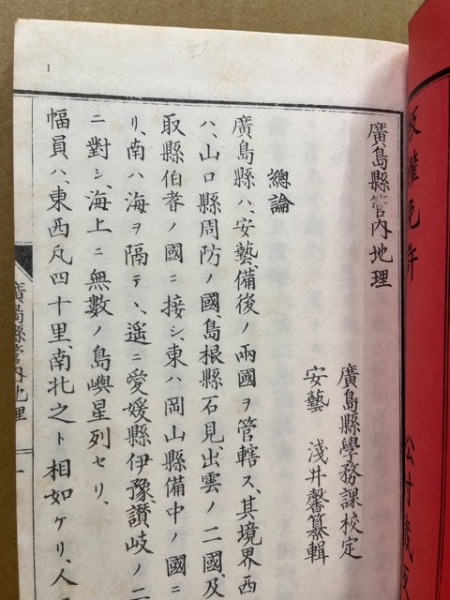 版權免許
廣島縣管内地理
廣島縣學務課校定
安藝 淺井馨纂輯
總論
廣島縣ハ、安藝、備後ノ兩國ヲ管轄ス、其境界西
ハ、山口縣周防ノ國、島根縣石見、出雲ノ二國、及
取縣伯耆ノ國ニ接シ、東ハ岡山縣備中ノ國ニ
リ、南ハ海ヲ隔テヽ、遥ニ愛媛縣伊豫讃岐ノ二
ニ對シ、海上ニ無數ノ島嶼星列セリ、
幅員ハ、東西凡四十里、南北之ト相如ケリ、人
廣島縣管内地理
一
1